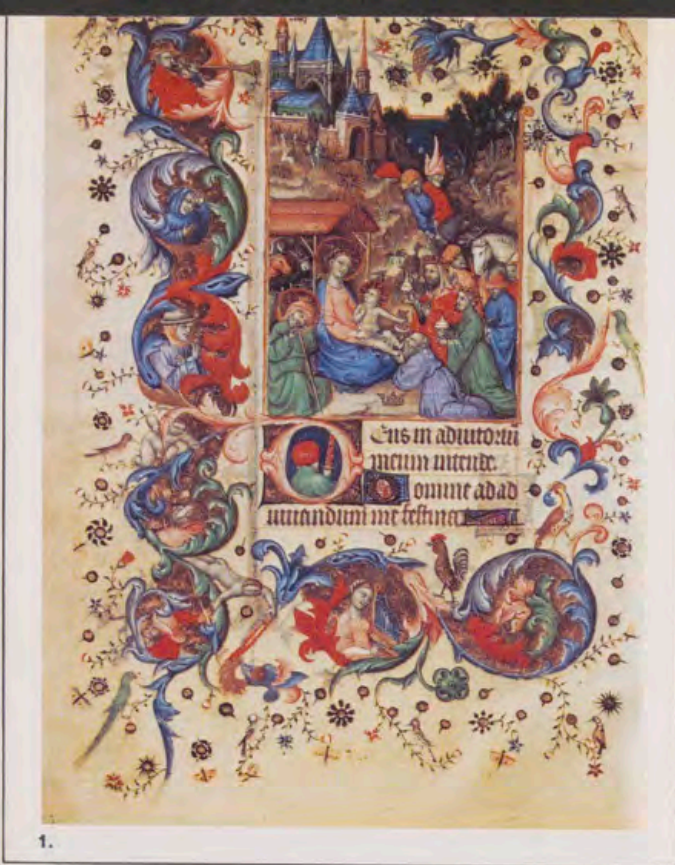 Eus in adiutoriu
meum intende.
omine ad ad
iuuandum me festina
1.